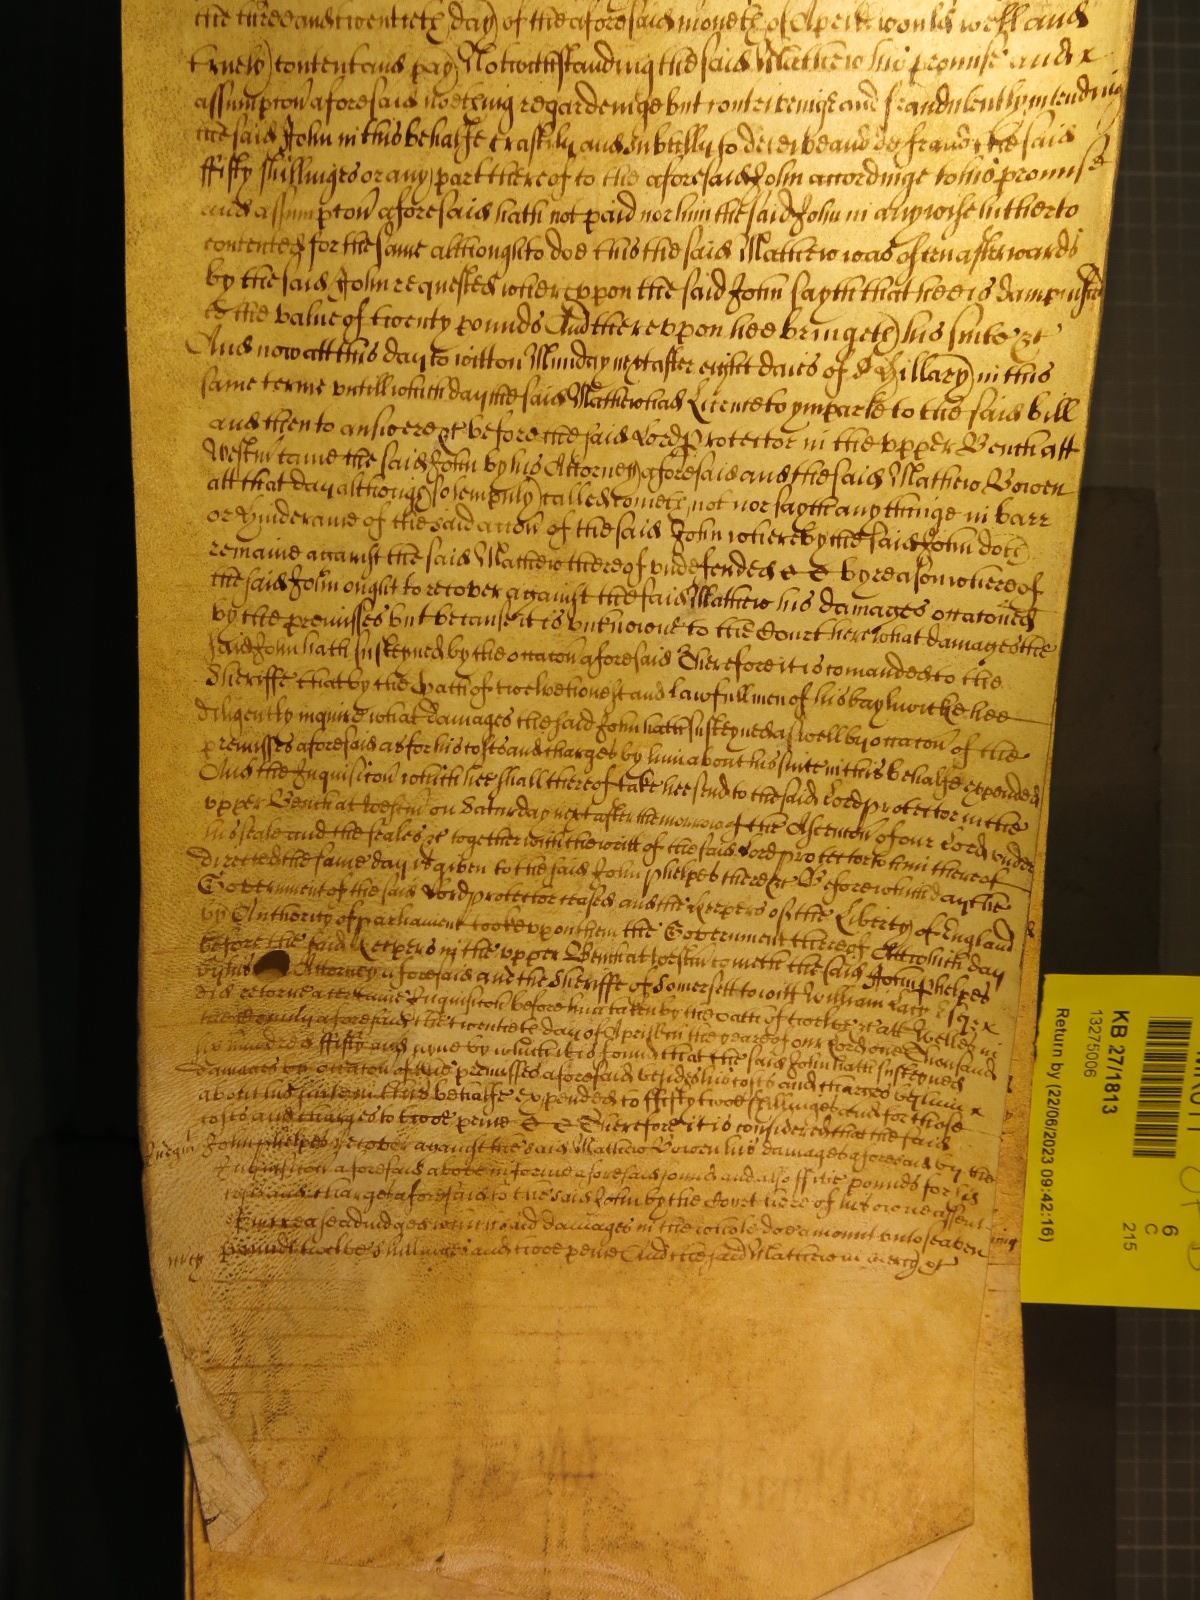 the three and twentieth day of the aforesaid moneth of Aprill would well and
truely content and pay Notwithstanding the said Mathew his promise and x
assumpton aforesaid noething regardeinge but contriveinge and fraudulently intending
the said John in this behalfe craftily and subtilly to deceive and defraud the said
ffifty shillinges or any part thereof to the aforesaid John accordinge to his promise
and assumpton aforesaid hath not paid nor him the said John in any wise hitherto
contented for the same although to doe this the said Mathew was often afterwards
by the said John requested whereuppon the said John sayth that hee is dampnified
to the value of twenty pounds And thereuppon hee bringeth his suite &c
And now att this day to witt on Munday next after eight daies of St Hillary in this
same terme untill which day the said Mathew had Licence to imparle to the said bill
and then to answere &c before the said Lord Protector in the upper Bench att
Westm came the said John by his Attorney aforesaid and the said Mathew Bowen
att that day although solempnly called cometh not nor sayth any thinge in barr
or hinderance of the said accon of the said John whereby the said John doth
remaine against the said Mathew thereof undefended & & by reason whereof
the said John ought to recover against the said Mathew his damages occationed
by the premisses but because it is unknowne to the Court here what damages the
said John hath susteyned by the occacon aforesaid Therefore it is comanded to the
Sheriffe that by the Oath of twelve honest and lawfull men of his baylwicke hee
diligently inquire what damages the said John hath susteyned as well by occacon of the
premisses aforesaid as for his costs and charges by him about his suite in this behalfe expended
And the Inquisicon which hee shall thereof take hee send to the said Lord protector in the
upper Bench at Westm on Saturday next after the morrow of the Ascencon of our Lord under
his seale and the seales &c together with the writt of the said Lord protector to him thereof
directed the same day is given to the said John phelpes there &c Before which day the
Government of the said Lord protector ceased and the Keepers of the Liberty of England
by Authority of parliament tooke uppon them the Government thereof Att which day
before the said Keepers in the upper Bench at Westm cometh the said John phelpes
by his Attorney aforesaid and the Sheriffe of Somersett to witt William Esqr x
did retorne a certaine Inquisicon before him taken by the oath of twelve &c att Welles in
the County aforesaid the twentieth day of Aprill in the yeare of our Lord one thousand
six hundred ffifty and nyne by which it is found that the said John hath susteyned
damages by occacon of the premisses aforesaid besides his costs and charges by him x
about his suite in this behalfe expended to ffifty twoe shillinges and for those
costs and charges to twoe pence & & Therefore it is considered that the said
John phelpes recover against the said Mathew Bowen his damages aforesaid by the
Inquisicon aforesaid above in forme aforesaid found and also ffive pounds for his
costs and charges aforesaid to the said John by the Court here of his owne assent
of increase adjudged which said damages in the whole doe amount unto seaven
pounds twelve shillinges and twoe pence And the said Mathew in mercy &c
mcy
KB 27/1813
13275006
Return by (22/06/2023 09:42:16)
6
C
215